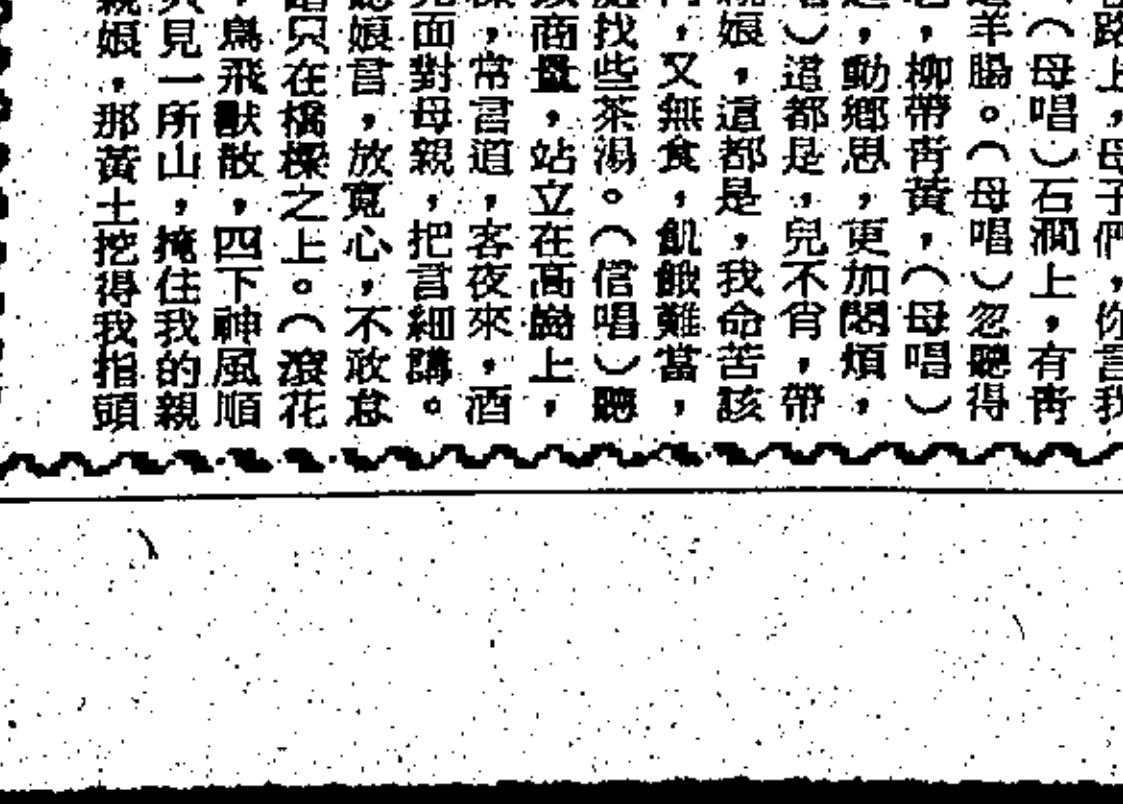 路上，母子們，你言我
（母唱）石澗上，有靑
羊腸。（母唱）忽聽得
，柳帶靑黃，（母唱）
，動鄉思，更加悶煩，
）道都是，兒不肖，帶
娘，這都是，我命苦該
，又無食，飢餓難當，
找些茶湯。（信唱）聽
商量，站立在高崗上，
，常言道，客夜來，酒
面對母親，把言細講。
娘言，放寬心，不敢怠
只在橋樑之上。（滾花
，鳥飛獸散，四下神風順
只見一所山，掩住我的親
親娘，那黃土挖得我指頭